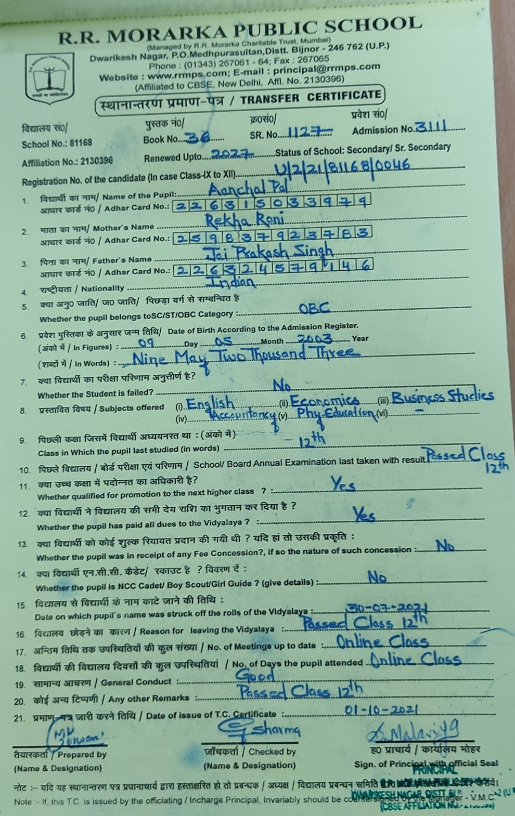 R.R. MORARKA PUBLIC SCHOOL
(Managed by R.R. Morarka Charitable Trust, Mumbai)
Dwarikesh Nagar, P.O.Medhpurasultan,Distt. Bijnor - 246 762 (U.P.)
Phone : (01343) 267061 - 64; Fax : 267065
Website : www.rrmps.com; E-mail : principal@rrmps.com
(Affiliated to CBSE, New Delhi, Affl. No. 2130396)
स्थानान्तरण प्रमाण-पत्र / TRANSFER CERTIFICATE
विद्यालय सं0/ पुस्तक नं0/ क्र0सं0/ प्रवेश सं0/
School No.: 81168 Book No. 36 SR. No. 1127 Admission No. 3111
Affiliation No.: 2130396 Renewed Upto. 2027 Status of School: Secondary/ Sr. Secondary
Registration No. of the candidate (In case Class-IX to XII). U/2/21/81168/0046
1. विद्यार्थी का नाम/ Name of the Pupil: Aanchal Pal
आधार कार्ड नं0 / Adhar Card No.: 226315033979
2. माता का नाम/ Mother's Name Rekha Rani
आधार कार्ड नं0 / Adhar Card No.: 259837923783
3. पिता का नाम/ Father's Name Jai Prakash Singh
आधार कार्ड नं0 / Adhar Card No.: 226324579146
4. राष्ट्रीयता / Nationality Indian
5. क्या अनु0 जाति/ ज0 जाति/ पिछड़ा वर्ग से सम्बन्धित है
Whether the pupil belongs toSC/ST/OBC Category : OBC
6. प्रवेश पुस्तिका के अनुसार जन्म तिथि/ Date of Birth According to the Admission Register.
(अंको में / In Figures) : 09 Day 05 Month 2003 Year
(शब्दों में / In Words) : Nine May Two Thousand Three
7. क्या विद्यार्थी का परीक्षा परिणाम अनुत्तीर्ण है?
Whether the Student is failed? No
8. प्रस्तावित विषय / Subjects offered (i) English (ii) Economics (iii) Business Studies
(iv) Accountancy (v) Phy. Education (vi) –
9. पिछली कक्षा जिसमें विद्यार्थी अध्ययनरत था : (अंको में)
Class in Which the pupil last studied (in words) 12th
10. पिछले विद्यालय / बोर्ड परीक्षा एवं परिणाम / School/ Board Annual Examination last taken with result Passed Class 12th
11. क्या उच्च कक्षा में पदोन्नत का अधिकारी है?
Whether qualified for promotion to the next higher class ? : Yes
12. क्या विद्यार्थी ने विद्यालय की सभी देय राशि का भुगतान कर दिया है ?
Whether the pupil has paid all dues to the Vidyalaya ? : Yes
13. क्या विद्यार्थी को कोई शुल्क रियायत प्रदान की गयी थी ? यदि हां तो उसकी प्रकृति :
Whether the pupil was in receipt of any Fee Concession?, if so the nature of such concession : No
14. क्या विद्यार्थी एन.सी.सी. कैडेट/ स्काउट है ? विवरण दें :
Whether the pupil is NCC Cadet/ Boy Scout/Girl Guide ? (give details) : No
15. विद्यालय से विद्यार्थी के नाम काटे जाने की तिथि :
Date on which pupil's name was struck off the rolls of the Vidyalaya : 30-07-2021
16. विद्यालय छोड़ने का कारण / Reason for leaving the Vidyalaya : Passed Class 12th
17. अन्तिम तिथि तक उपस्थितियों की कुल संख्या / No. of Meetings up to date : Online Class
18. विद्यार्थी की विद्यालय दिवसों की कुल उपस्थितियां / No. of Days the pupil attended Online Class
19. सामान्य आचरण / General Conduct : Good
20. कोई अन्य टिप्पणी / Any other Remarks : Passed Class 12th
21. प्रमाण-पत्र जारी करने तिथि / Date of issue of T.C. Certificate : 01-10-2021
Sharma
तैयारकर्ता / Prepared by जाँचकर्ता / Checked by ह0 प्राचार्य / कार्यालय मोहर
(Name & Designation) (Name & Designation) Sign. of Principal with official Seal
PRINCIPAL
नोट :- यदि यह स्थानान्तरण पत्र प्रधानाचार्य द्वारा हस्ताक्षरित हो तो प्रबन्धक / अध्यक्ष / विद्यालय प्रबन्धन समिति
DWARIKESH NAGAR, DISTT.
Note :- If, this T.C. is issued by the officiating / Incharge Principal, Invariably should be Manager - V.M.C.
(CBSE AFFILIATION NO.